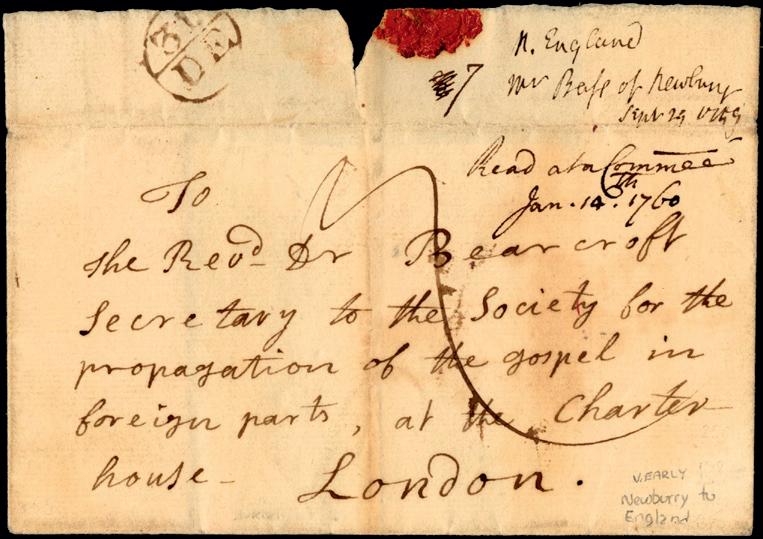 31
DE
N. England
7
Mr Bass of Newbury
Sept 29 1759
Read at a Commee
Jan. 14th. 1760
To
The Revd Dr Bearcroft
Secretary to the Society for the
propagation of the gospel in
foreign parts, at the Charter
house -
London.
V. EARLY
Newburry to
England